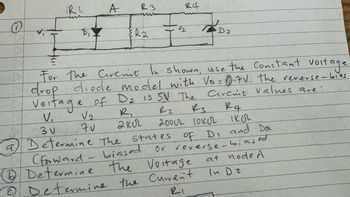 R1 A R3 R4
①
V1 D1 R2 V2 D2
For the Circuit In shown, use the Constant Voltage
drop diode model with VD = 0.7V. the reverse-bias
Voltage of D2 is 5V The Circuit values are:
V1 V2 R1 R2 R3 R4
3V 7V 2KΩ 200Ω 10KΩ 1KΩ
ⓐ Determine The states of D1 and D2
(forward-biased or reverse-biased
ⓑ Determine the Voltage at node A
ⓒ Determine the Current In D2
R1